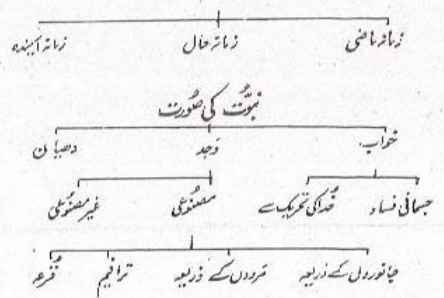 زمانہ ماضی زمانہ حال زمانہ آئیندہ
نبوّت کی صُورت
خواب وَجد دھیان
جسمانی فساد خُدا کی تحریک سے مصنُوعی غیر مصنُوعی
جانوروں کے ذریعہ مُردوں کے ذریعہ ترافیم قُرعہ